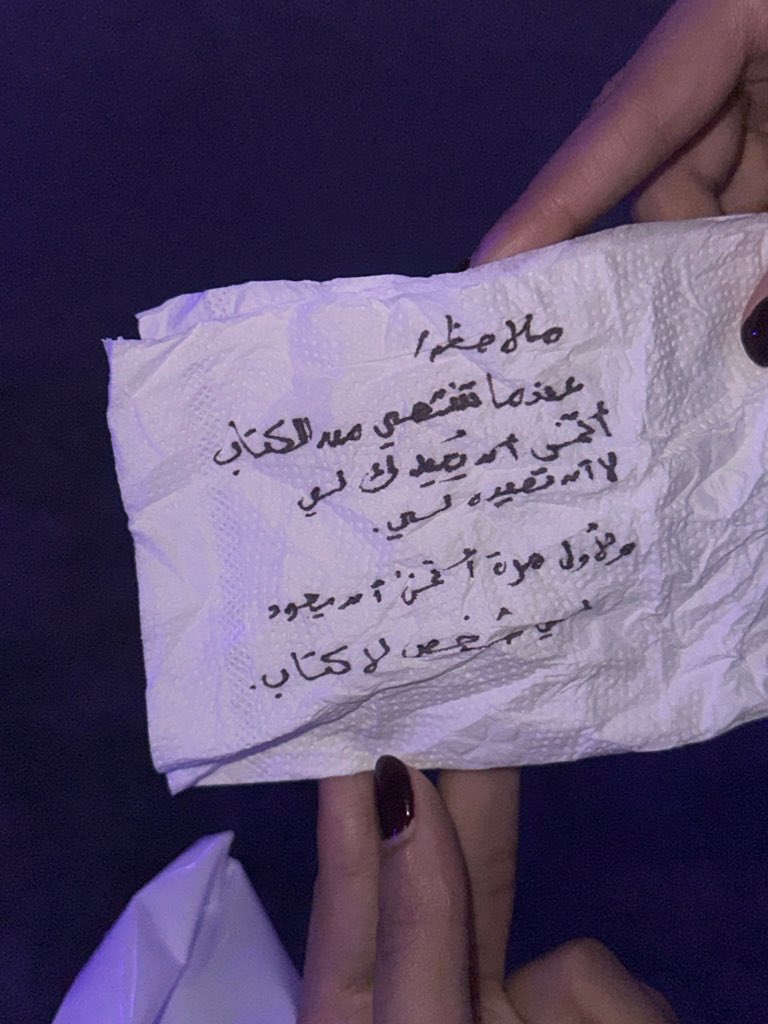 ملاحظة/
عندما تنتهي من الكتاب
أتمنى أن يُعيدك لي
لا أن تعيده لي.
ولأول مرة أتمنى أن يعود
لي شخص لا كتاب.